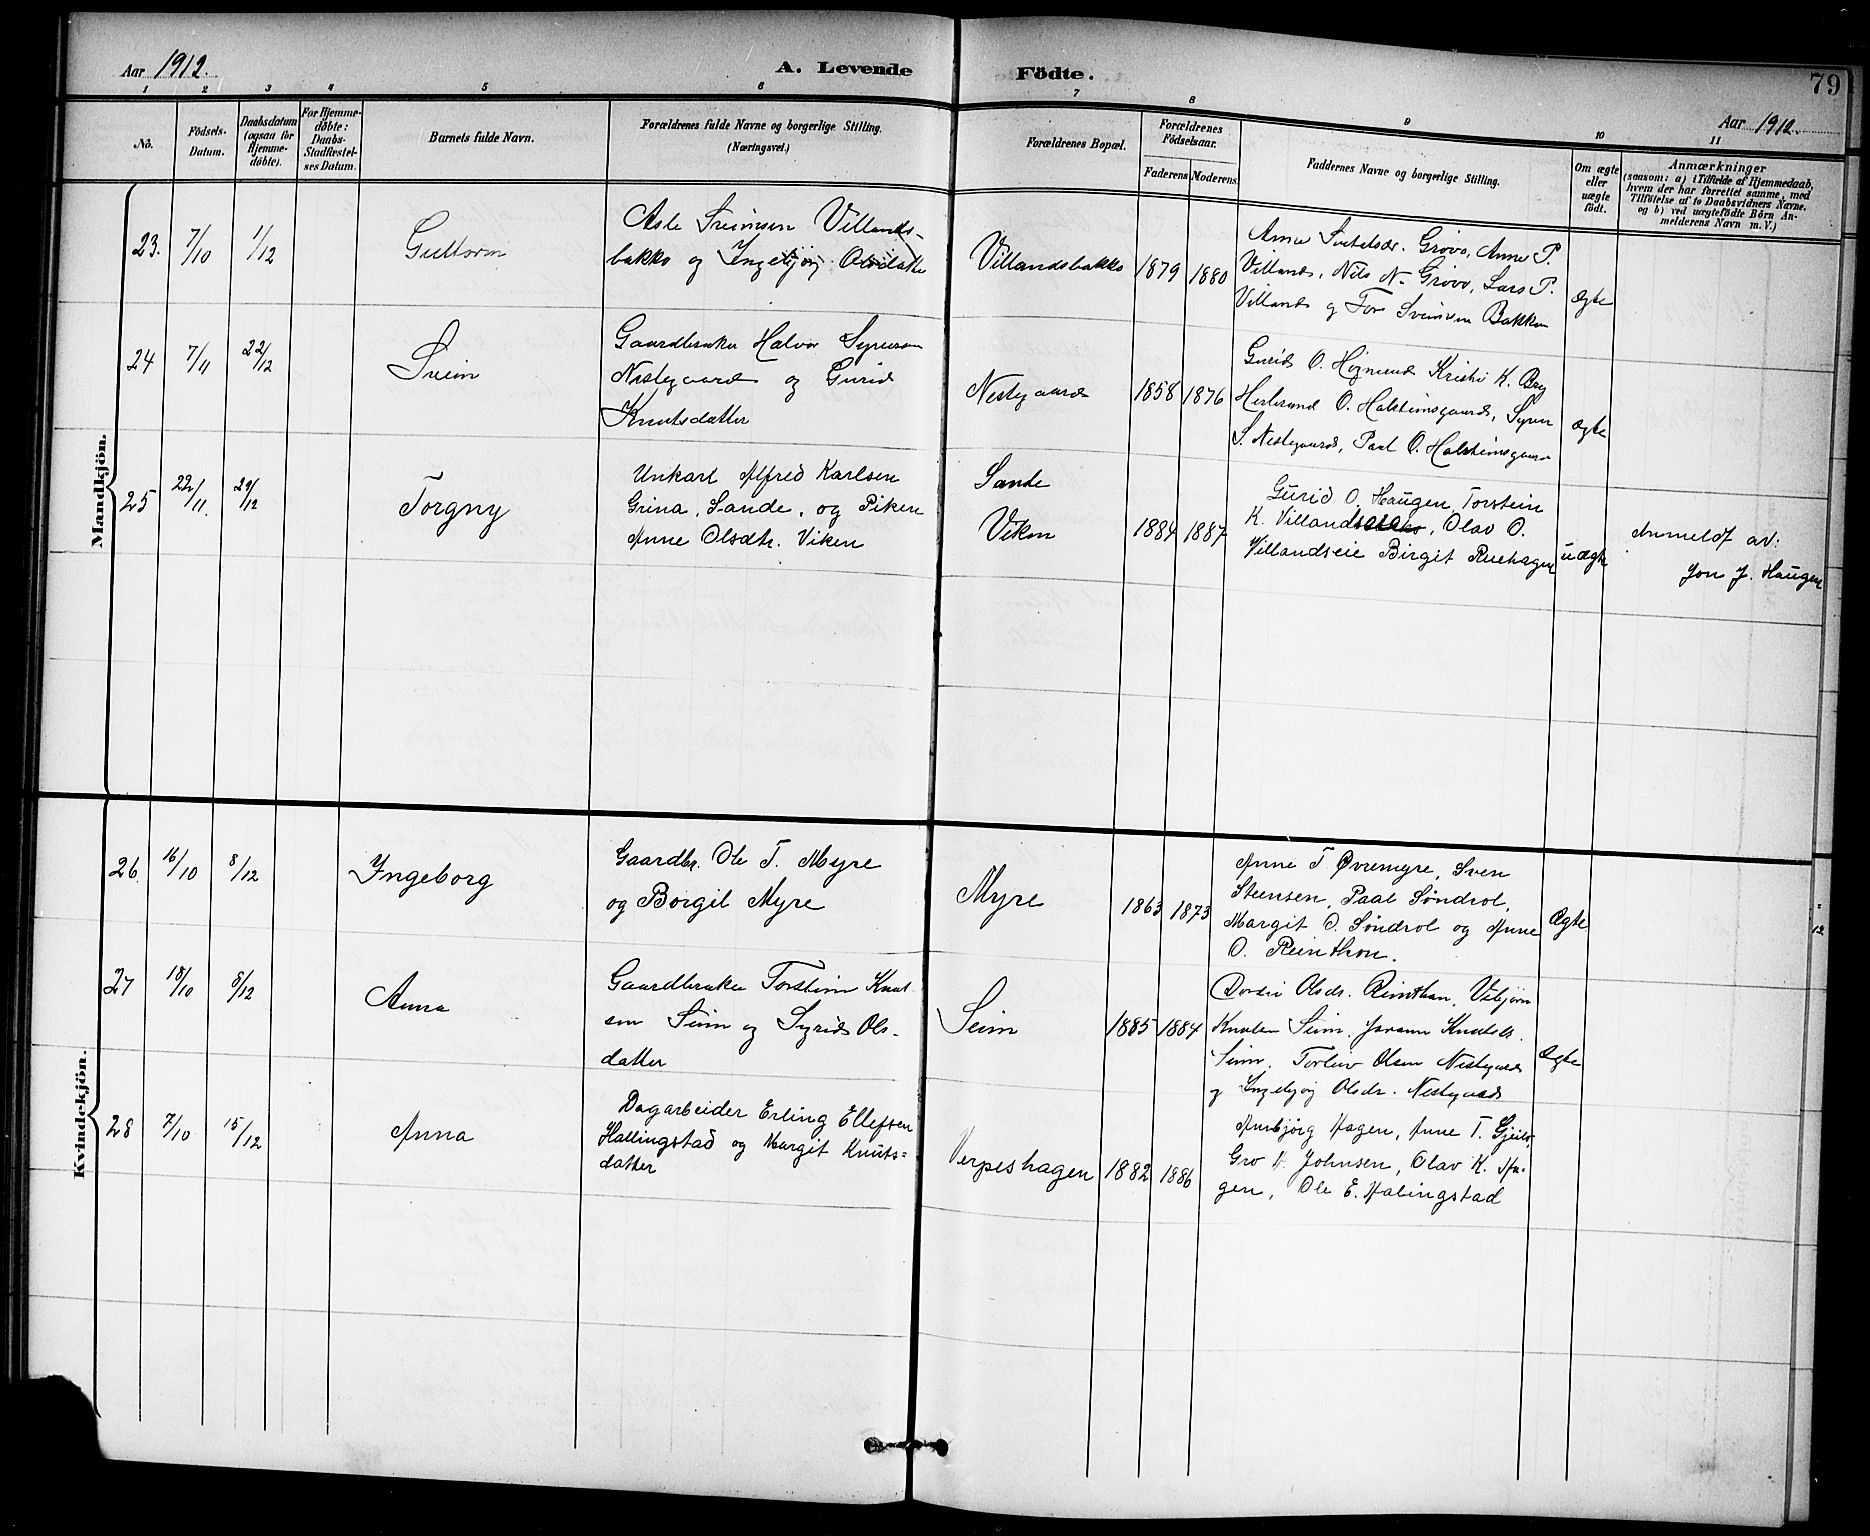 Aar 1912.
A. Levende Födte.
79
Aar 1912.
1 2 3 4 5 6 7 8 9 10 11
No.
Födsels-Datum.
Daabsdatum (ogsaa for Hjemme-döbte).
For Hjemme-döbte: Daabs-Stadfæstel-ses Datum.
Barnets fulde Navn.
Forældrenes fulde Navne og borgerlige Stilling.
(Næringsvei.)
Forældrenes Bopæl.
Forældrenes Födselsaar.
Faderens Moderens
Faddernes Navne og borgerlige Stilling.
Om ægte eller uægte födt.
Anmærkninger
(saasom: a) i Tilfælde af Hjemmedaab,
hvem der har forrettet samme, med
Tilföielse af to Daabsvidners Navne,
og b) ved uægtefödte Börn An-
melderens Navn m. V.)
Mandkjön.
23. 7/10 1/12
Guttorm
Asle Sveinsen Villands-
bakko og Ingebjörg
Villandsbakko
1879 1880
Grøvo, Anne P.
Villand, Nils N. Grøvo, Lars P.
Villand og Tor Sveinsen Bakken
ægte
24 7/11 22/12
Svein
Gaardbruker Halvor Syversen
Nestegaard og Gurid
Knutsdatter
Nestegaard
1858 1876
Gurid O. Kristi K.
Herbrand O. Halsteinsgaard, Syver
S. Nestegaard, Paal O. Halsteinsgaard
ægte
25 22/11. 29/12
Torgny
Unkarl Alfred Karlsen
Grina, Sande, og Piken
Anne Olsdtr. Viken
Sande
Viken
1884 1887
Gurid O. Haugen, Torstein
K. Villand, Olav O.
Villandseie Birgit Ruehagen
uægte
Anmeldt av:
Jon J. Haugen
Kvindekjön.
26. 16/10 8/12
Ingeborg
Gaardbr. Ole T. Myre
og Borgil Myre
Myre
1863 1873
Anne T. Øvremyre, Sven
Steensen, Paal Søndrol,
Margit O. Søndrol og Anne
O. Reinthon.
Ægte
27 18/10 8/12
Anna
Gaardbruker Torstein Knut-
sen Seim og Syrid Ols-
datter
Seim
1885 1884
Olsdr. Reinthon, Vebjørn
Knutsen Seim, Knutsdr.
Seim, Torleiv Olsen Nestegaard
og Ingebjørg Olsdr. Nestegaard
Ægte
28 7/10 15/12
Anna
Dagarbeider Erling Ellefsen
Hallingstad og Margit Knuts=
datter
Verpeshagen
1882 1886
Annbjörg Hagen, Anne T. Gjeilo,
Gro Johnsen, Olav K. Ha-
gen, Ole E. Halingstad